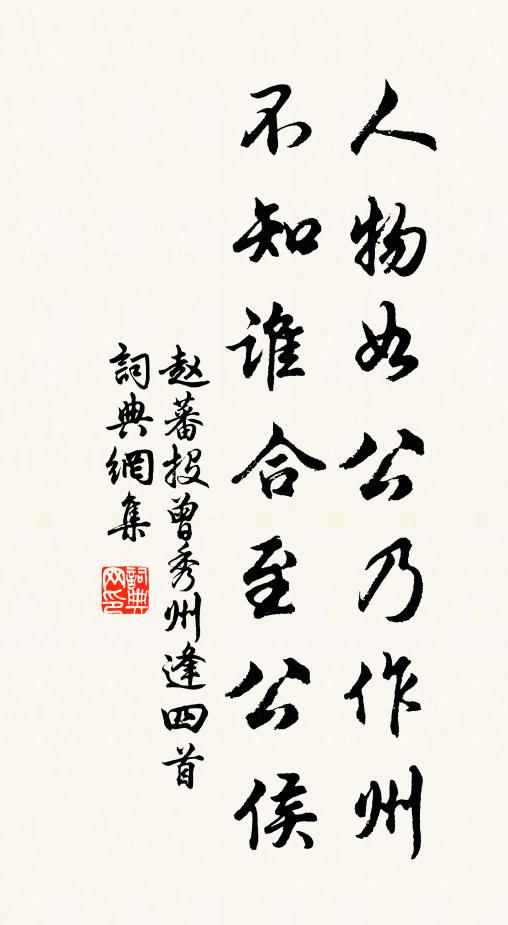 人物如公乃作州
不知谁合至公侯
赵蕃投曾秀州逢四首
詞典網集
詞典網印